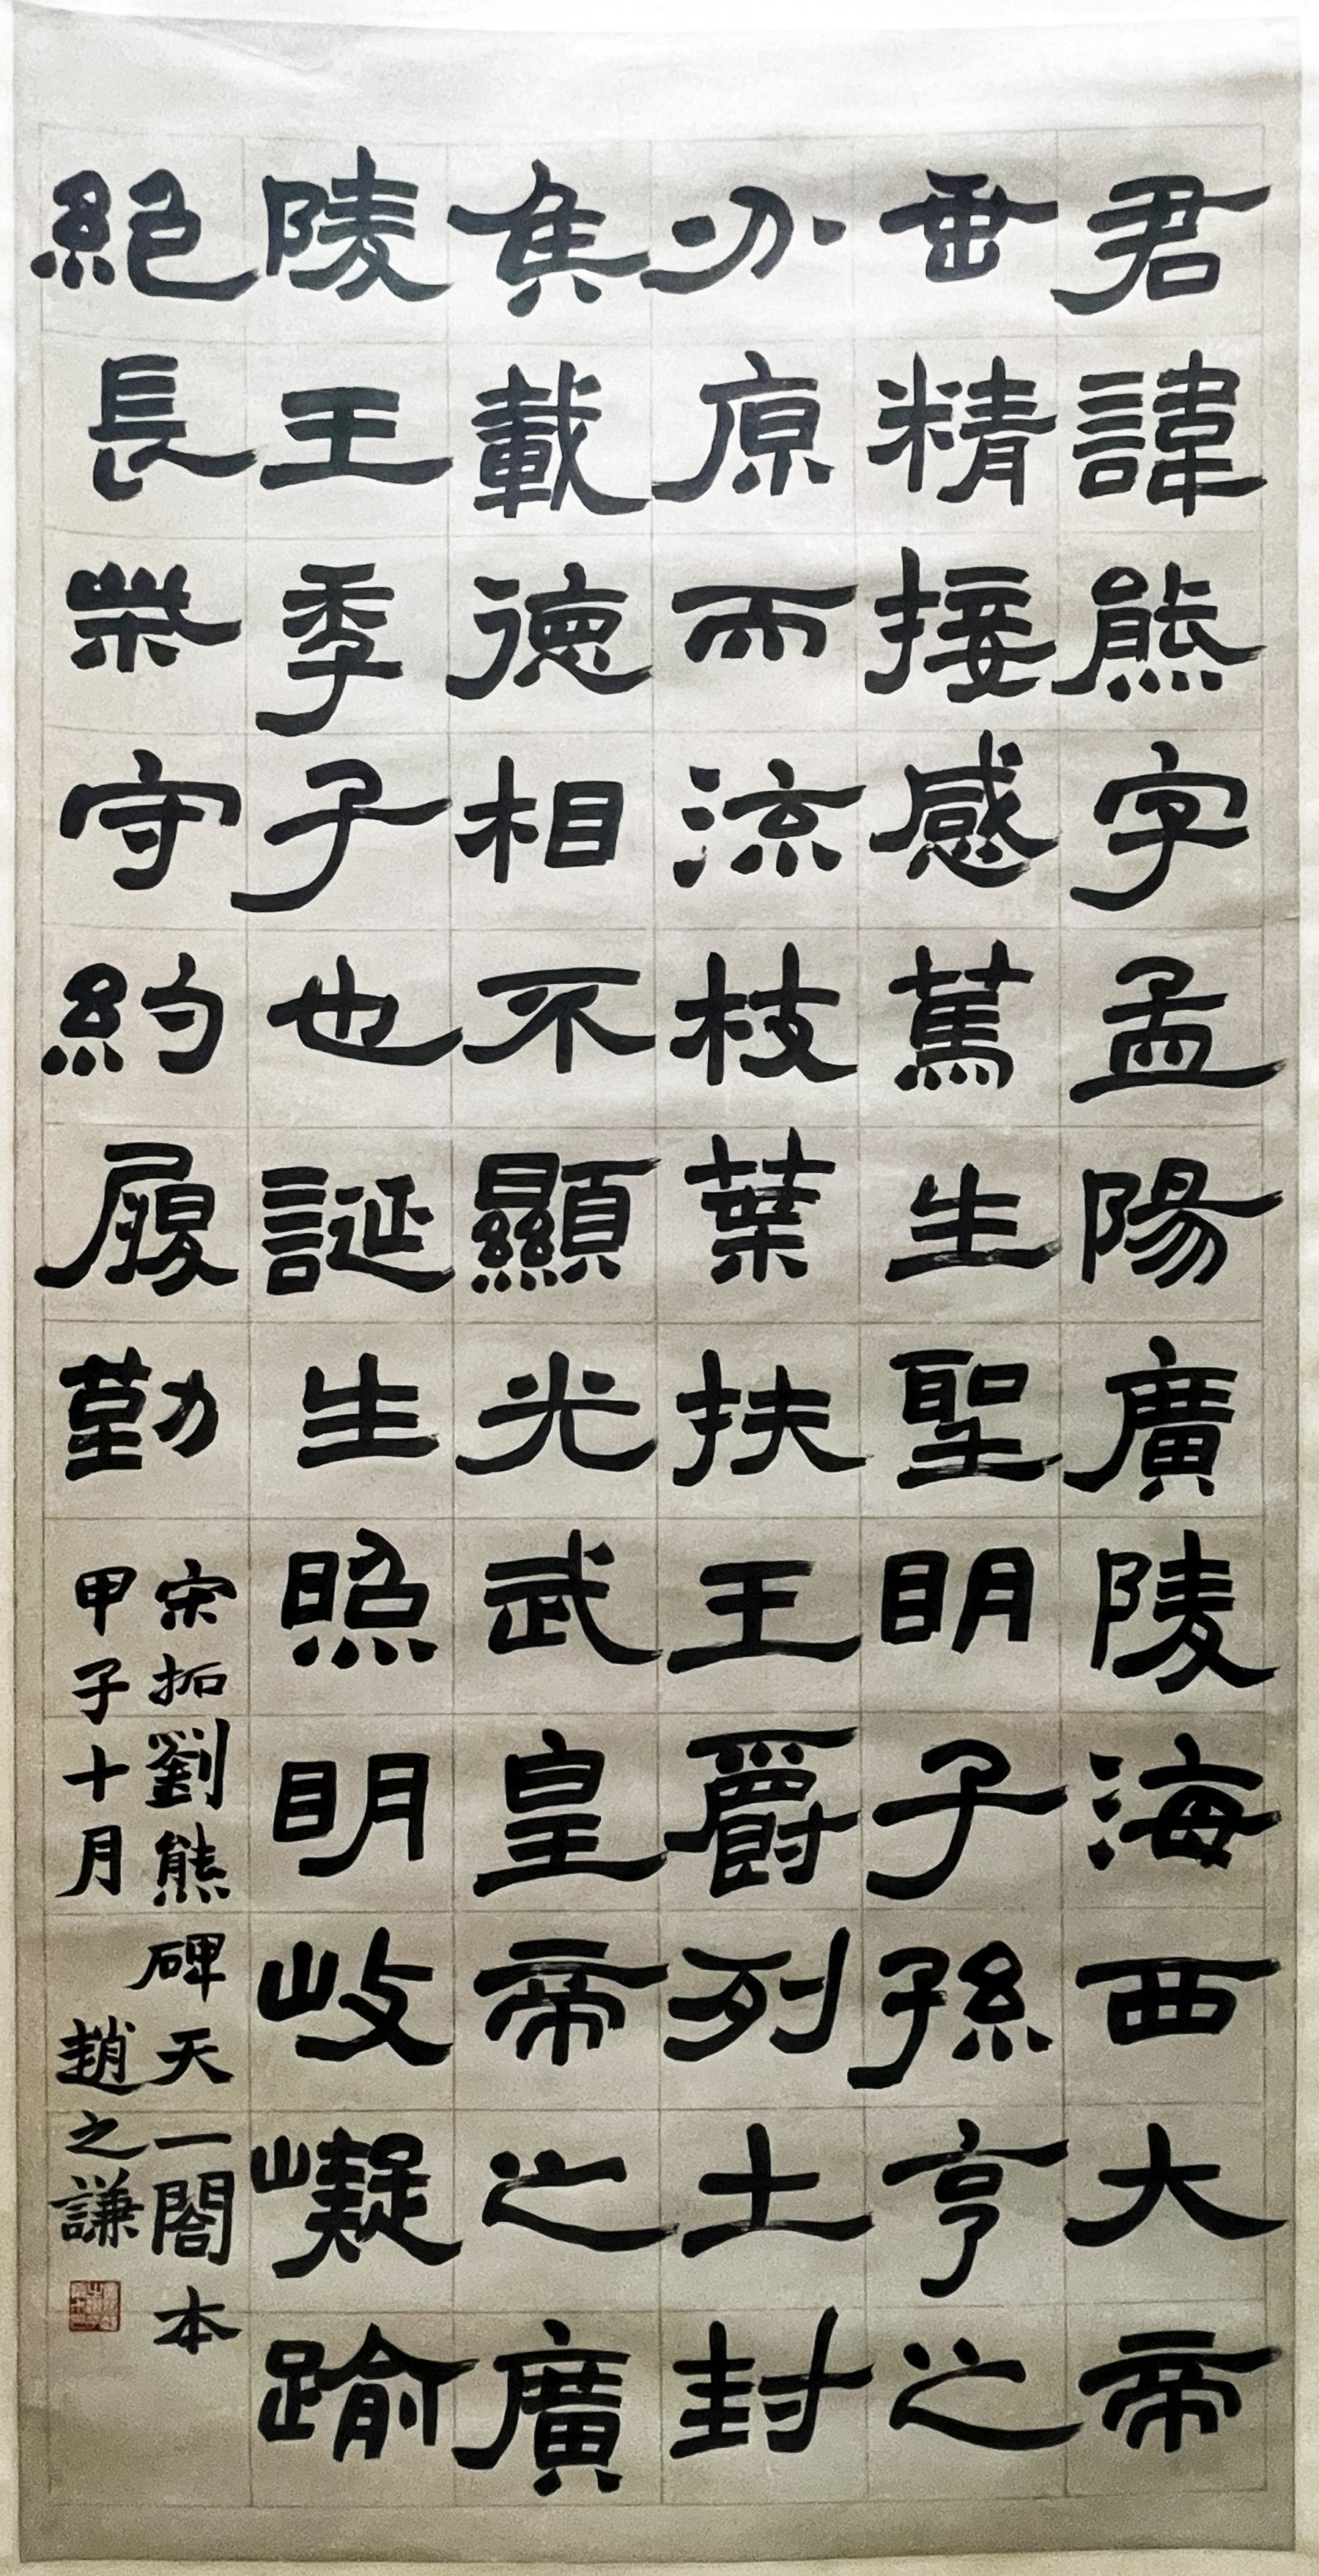 君諱熊字孟陽廣陵海西大帝
垂精接感篤生聖眀子孫亨之
分原而流枝葉扶王爵列土封
矦載德相不顯光武皇帝之廣
陵王季子也誕生照眀岐嶷踰
絕長榮守約履勤
宋拓劉熊碑天一閣本
甲子十月
趙之謙